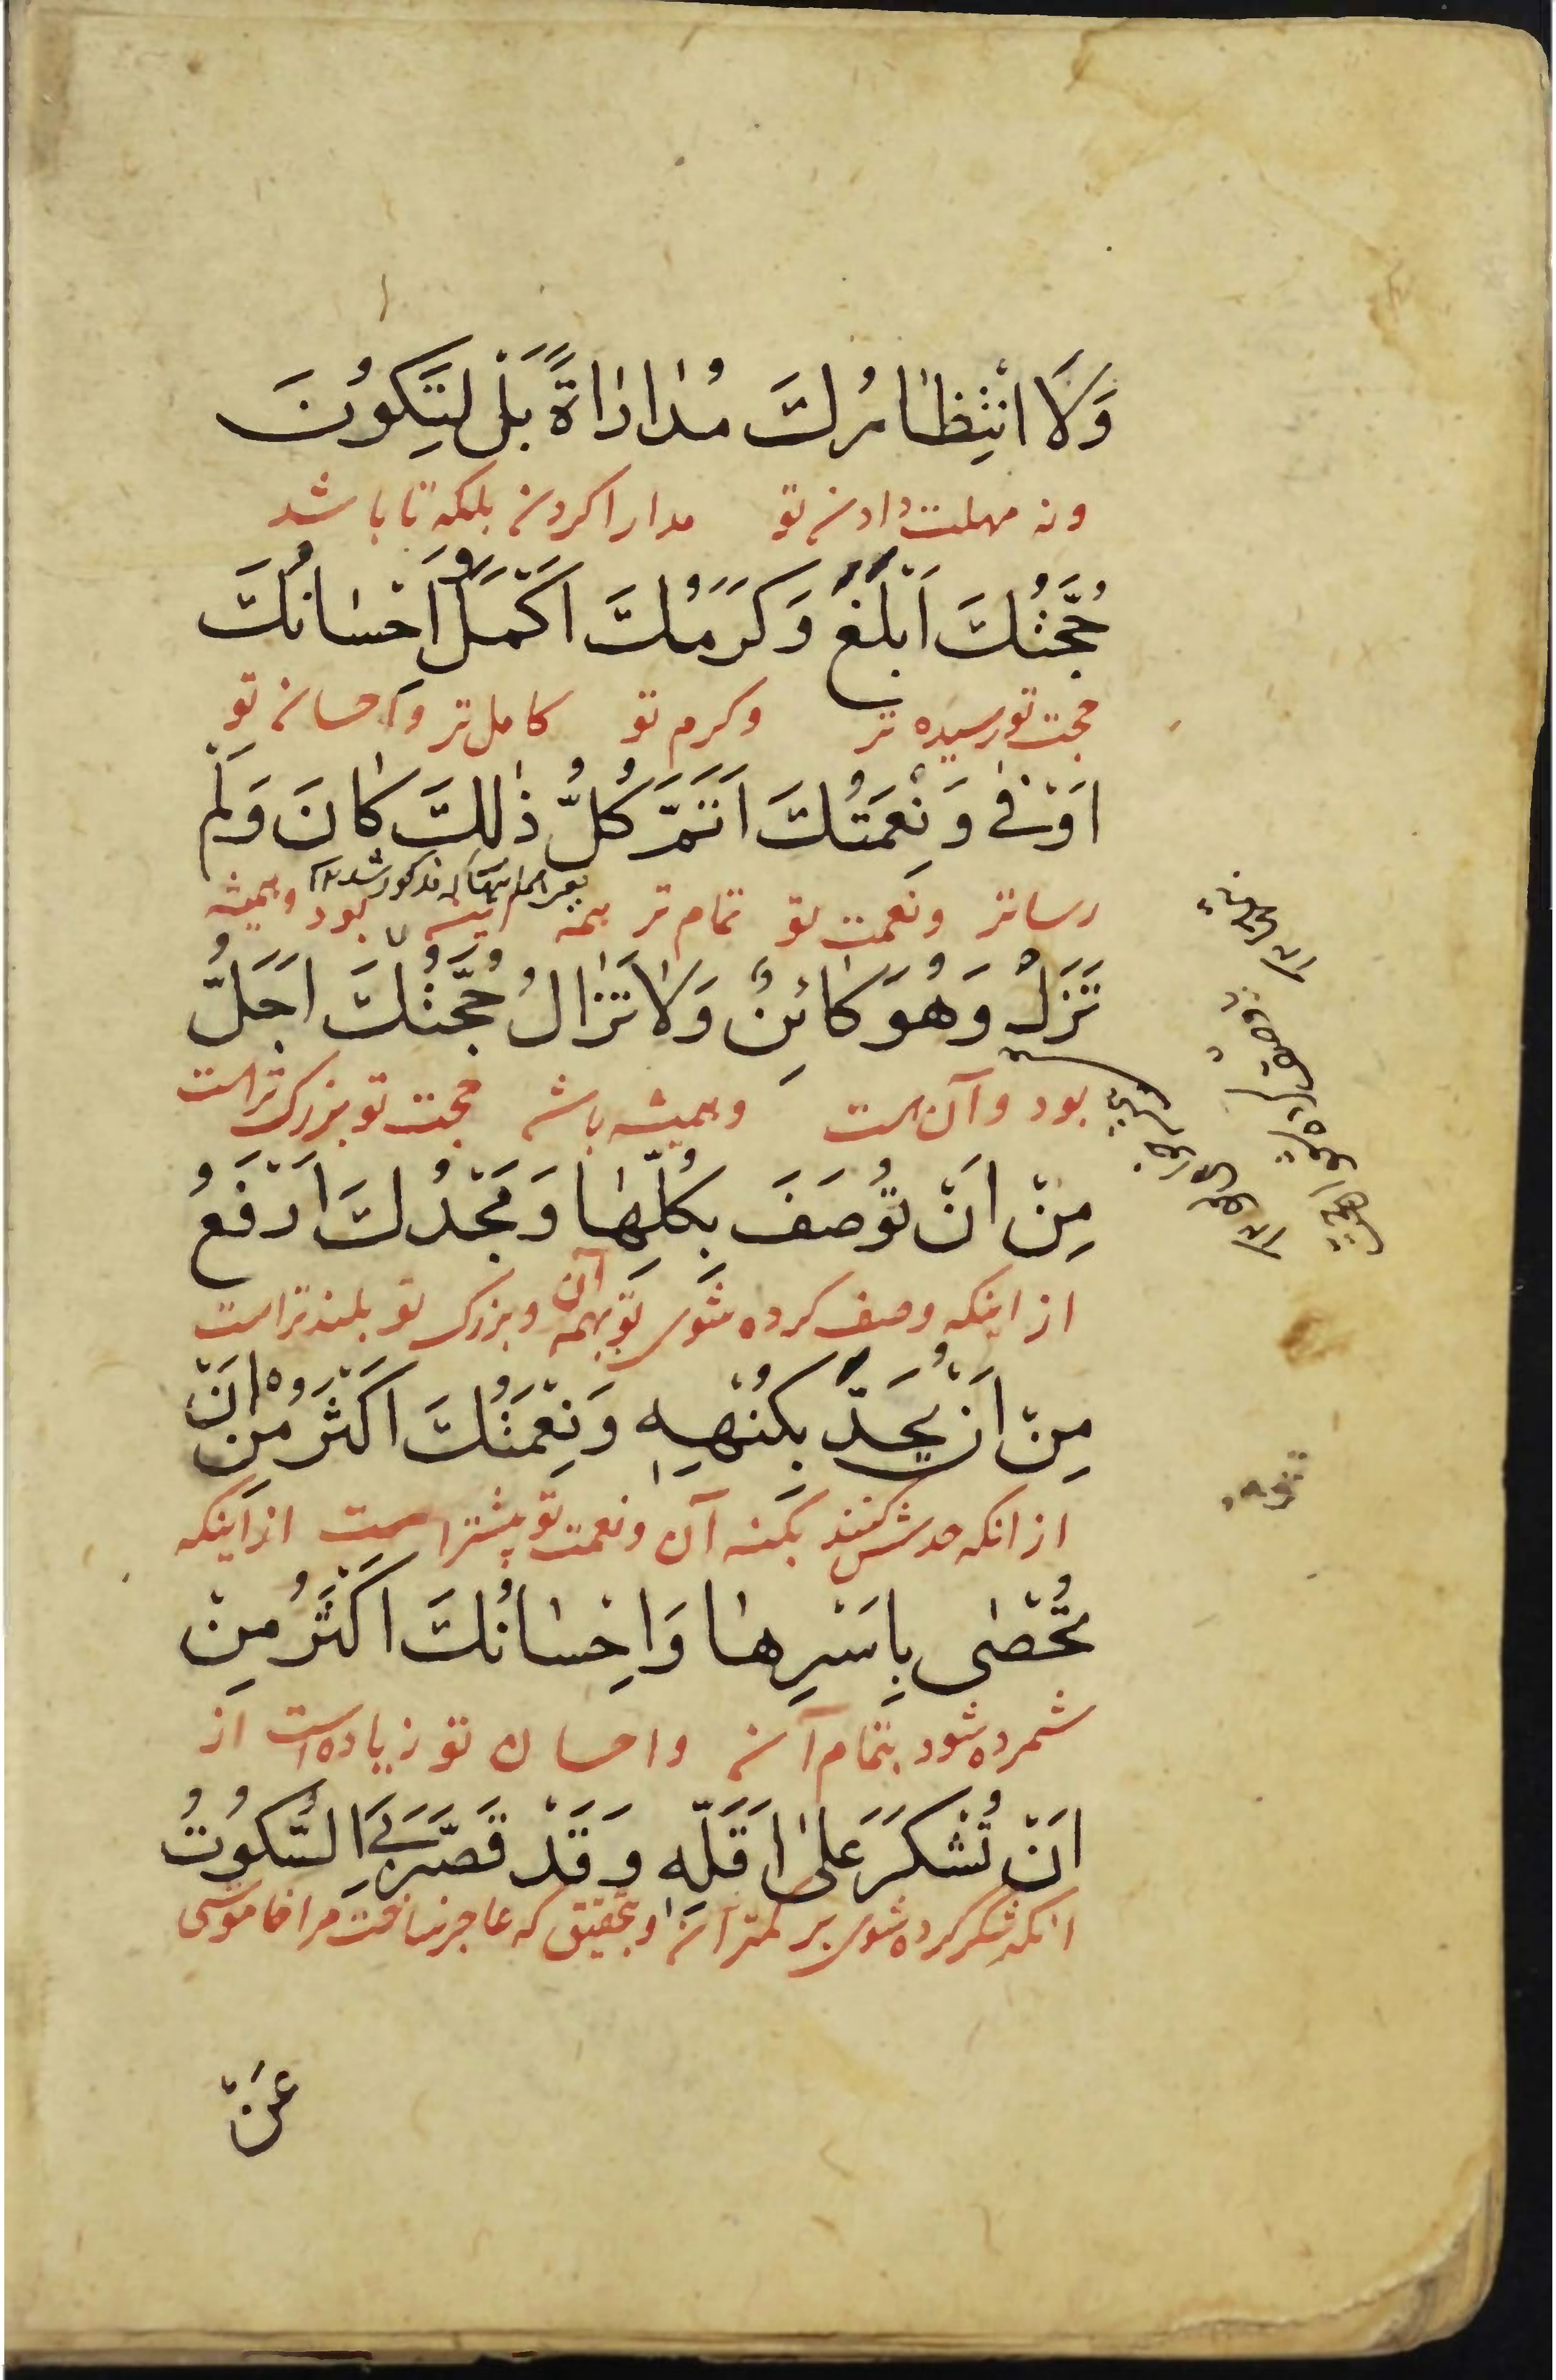 وَلَا انْتِظٰارُكَ مُدٰارٰاةً بَلْ لِتَكُونَ
ونه مهلت دادن تو مدارا کردن بلکه تا باشد
حُجَّتُكَ اَبْلَغَ وَكَرَمُكَ اَكْمَلَ وَاِحْسٰانُكَ
حجت تو رسیده تر وکرم تو کامل تر واحسان تو
اَوْفٰى وَنِعْمَتُكَ اَتَمَّ كُلُّ ذٰلِكَ كٰانَ وَلَمْ
مذکور شد
رساتر ونعمت تو تمام تر همه اینها بود وهمیشه
تَزَلْ وَهُوَ كٰائِنٌ وَلٰا تَزٰالُ حُجَّتُكَ اَجَلُّ
بود وآن هست وهمیشه باشد حجت تو بزرک تر است
مِنْ اَنْ تُوصَفَ بِكُلِّهٰا وَمَجْدُكَ اَرْفَعُ
از اینکه وصف کرده شوی تو بهمه آن وبزرکی تو بلندتر است
مِنْ اَنْ يُحَدَّ بِكُنْهِهِ وَنِعْمَتُكَ اَكْثَرُ مِنْ اَنْ
از انکه حدش کنند بکنه آن ونعمت تو بیشتر است از اینکه
تُحْصٰى بِاَسْرِهٰا وَاِحْسٰانُكَ اَكْثَرُ مِنْ
شمرده شود بتمام آن واحسان تو زیاده است از
اَنْ تُشْكَرَ عَلىٰ اَقَلِّهِ وَقَدْ قَصَّرَ بِيَ السُّكُوتُ
انکه شکر کرده شوی بر کمتر آن وبتحقیق که عاجز ساخت مرا خاموشی
عَنْ